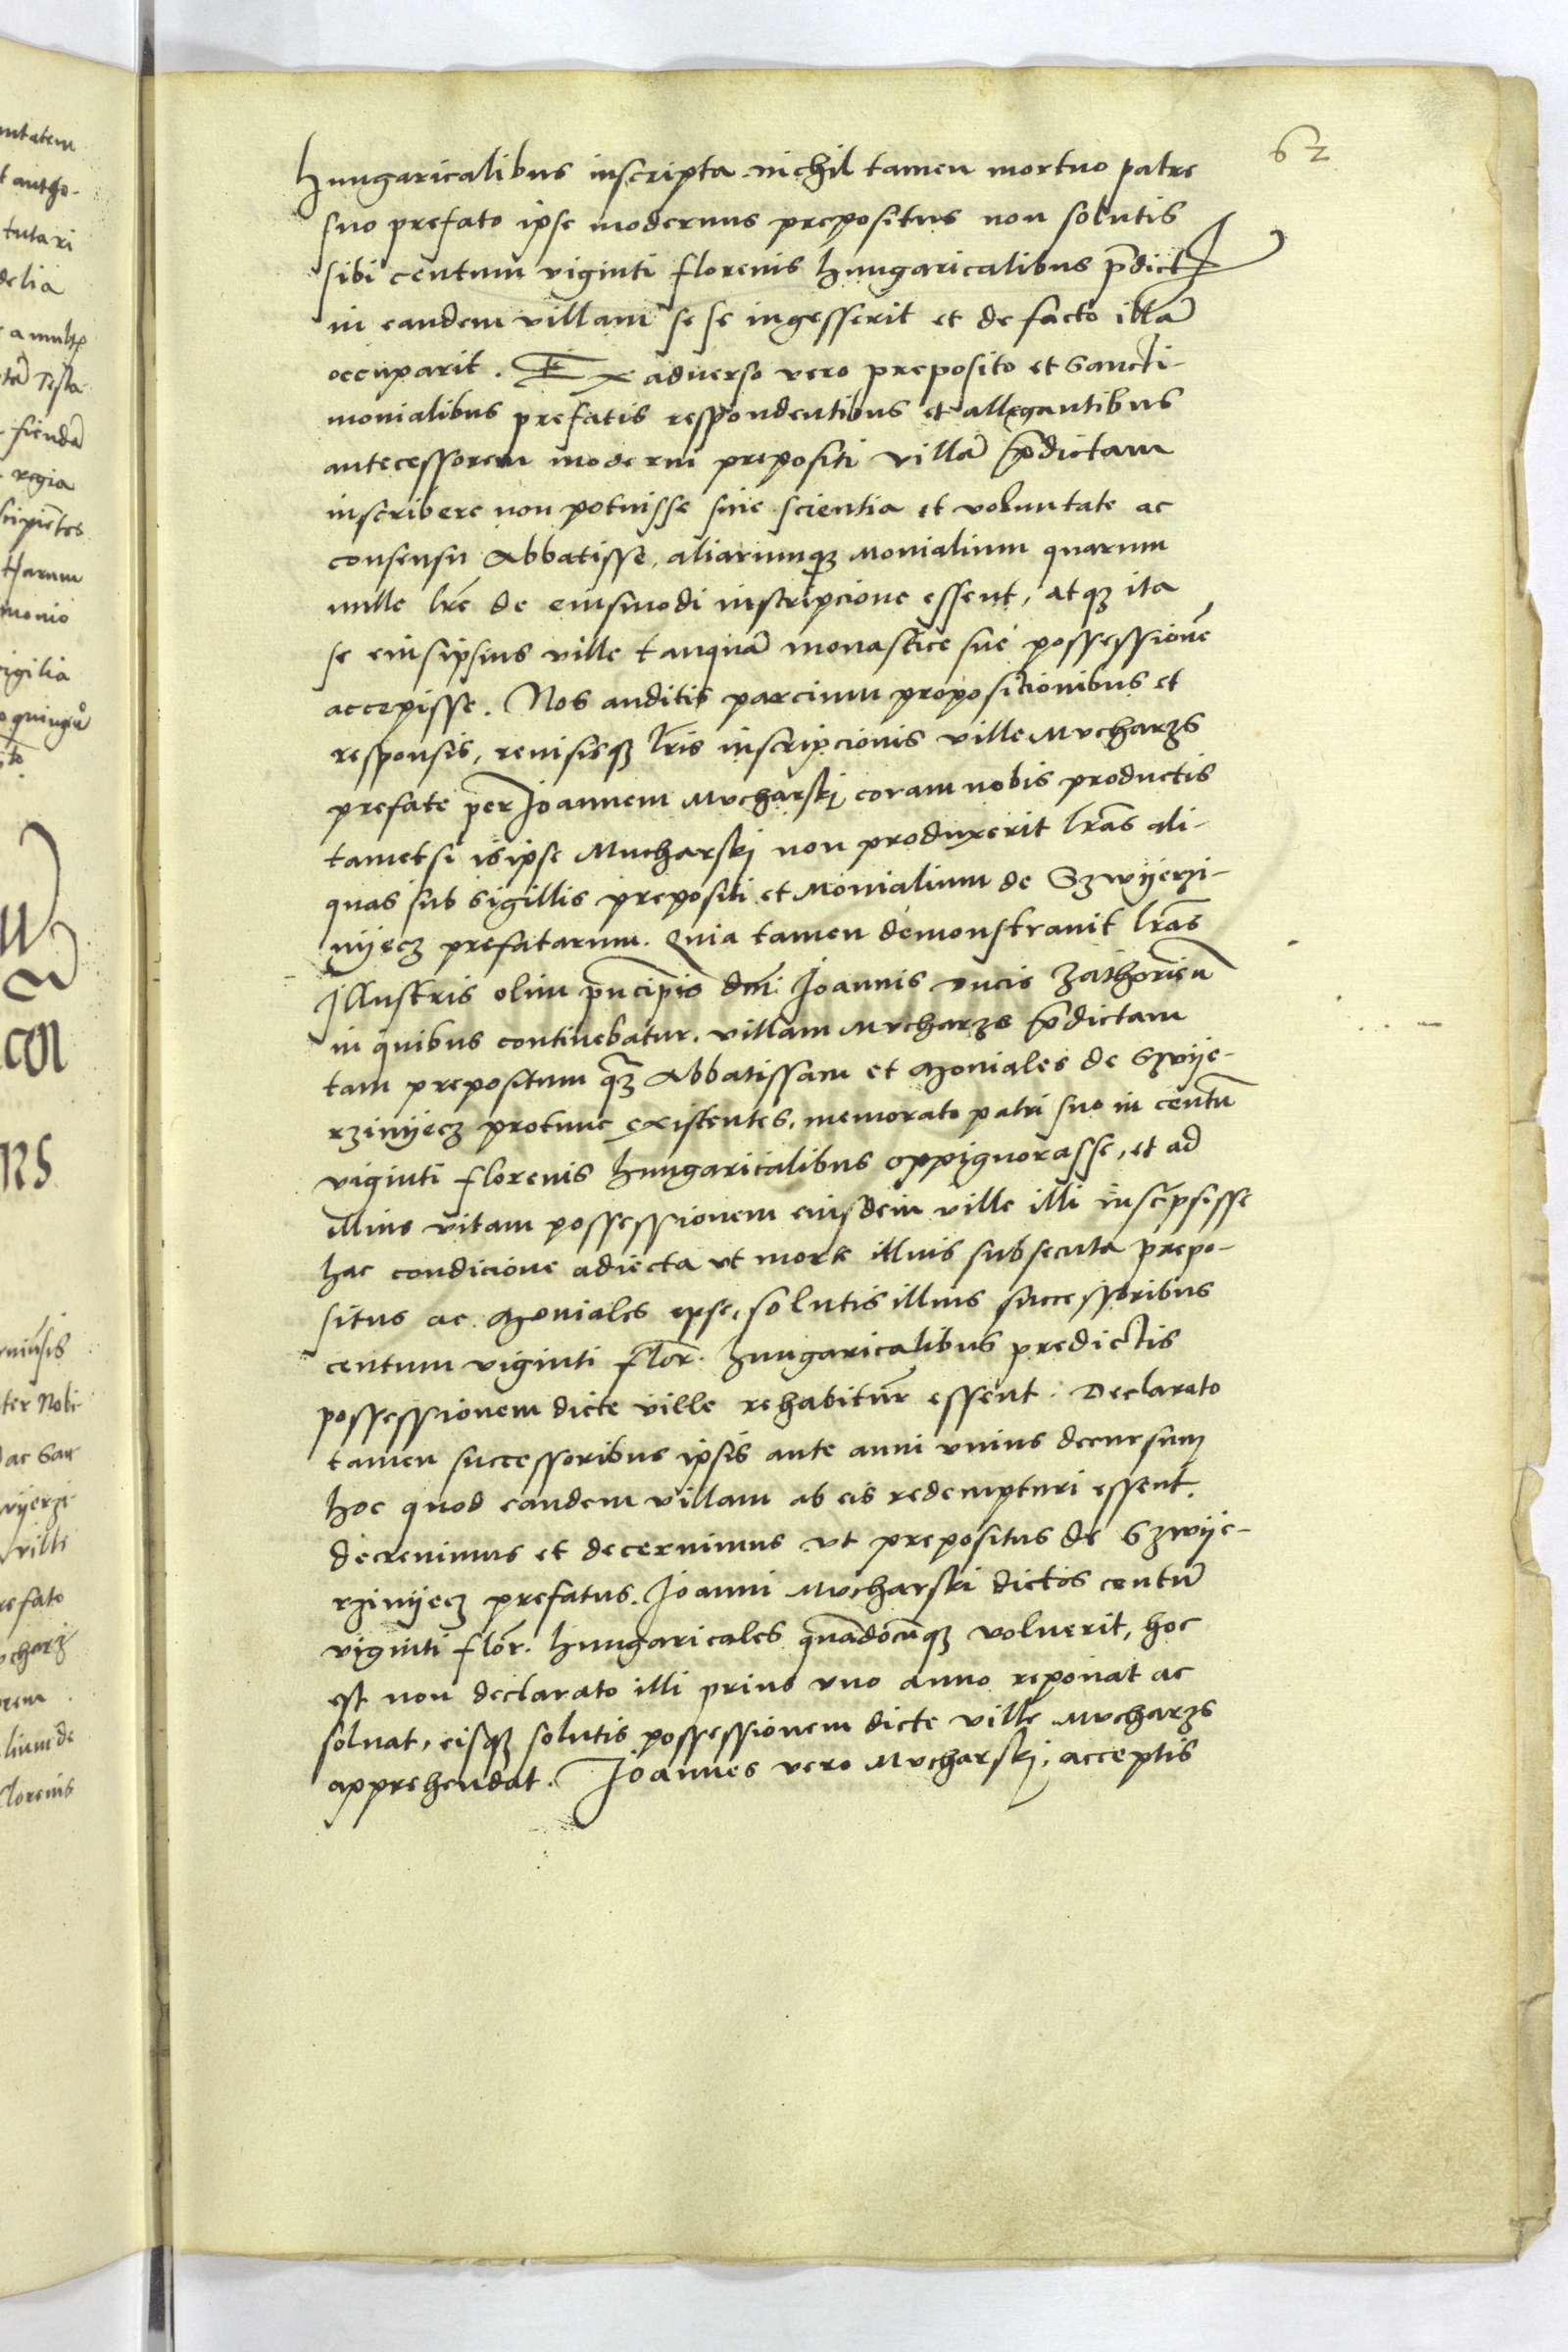 62
hungaricalibus inscripta nichil tamen mortuo patre
suo prefato ipse modernus prepositus non solutis
sibi centum viginti florenis hungaricalibus p̄dict
in eandem villam se se ingesserit et de facto illā
occuparit. Ex adverso vero preposito et Sancti-
monialibus prefatis respondentibus et allegantibus
antecessorem moderni prepositi villā p̄dictam
inscribere non potuisse sine scientia et voluntate ac
consensu Abbatisse, aliarumqꝫ Monialium quarum
nulle lr̄e de eiusmodi inscripcione essent, atqꝫ ita
se eiusipsius ville tanquā monastice sue possessionē
accepisse. Nos auditis parcium propositionibus et
responsis, revisisqꝫ lr̄is inscripcionis ville Mvcharzs
prefate per Joannem Mvcharskj coram nobis productis
tametsi is ipse Mucharskj non produxerit lr̄as ali-
quas sub sigillis prepositi et Monialium de Szwyerzi-
nyecz prefatarum. Quia tamen demonstravit lr̄as
Illustris olim pn̄cipis dn̄i Joannis ducis Zathoriēn̄
in quibus continebatur. villam Mvcharzs p̄dictam
tam prepositum qꝫ Abbatissam et Moniales de Szwye-
rzinyecz protunc existentes, memorato patri suo in centū
viginti florenis hungaricalibus oppignorasse, et ad
illius vitam possessionem eiusdem ville illi inscripsisse
hac condicione adiecta ut morte illius subsecuta prepo-
situs ac Moniales ipse, solutis illius successoribus
centum viginti flor̄. hungaricalibus predictis
possessionem dicte ville rehabitur̄ essent. Declarato
tamen successoribus ipsis ante anni unius decursum
hoc quod eandem villam ab eis redempturi essent.
decrevimus et decernimus ut prepositus de Szwye-
rzinyecz prefatus. Joanni Mvcharski dictos centū
viginti flor̄. hungaricales quādocūqꝫ voluerit, hoc
est non declarato illi prius uno anno reponat ac
solvat, eisqꝫ solutis possessionem dicte ville Mvcharzs
apprehendat. Joannes vero Mvcharskj, acceptis